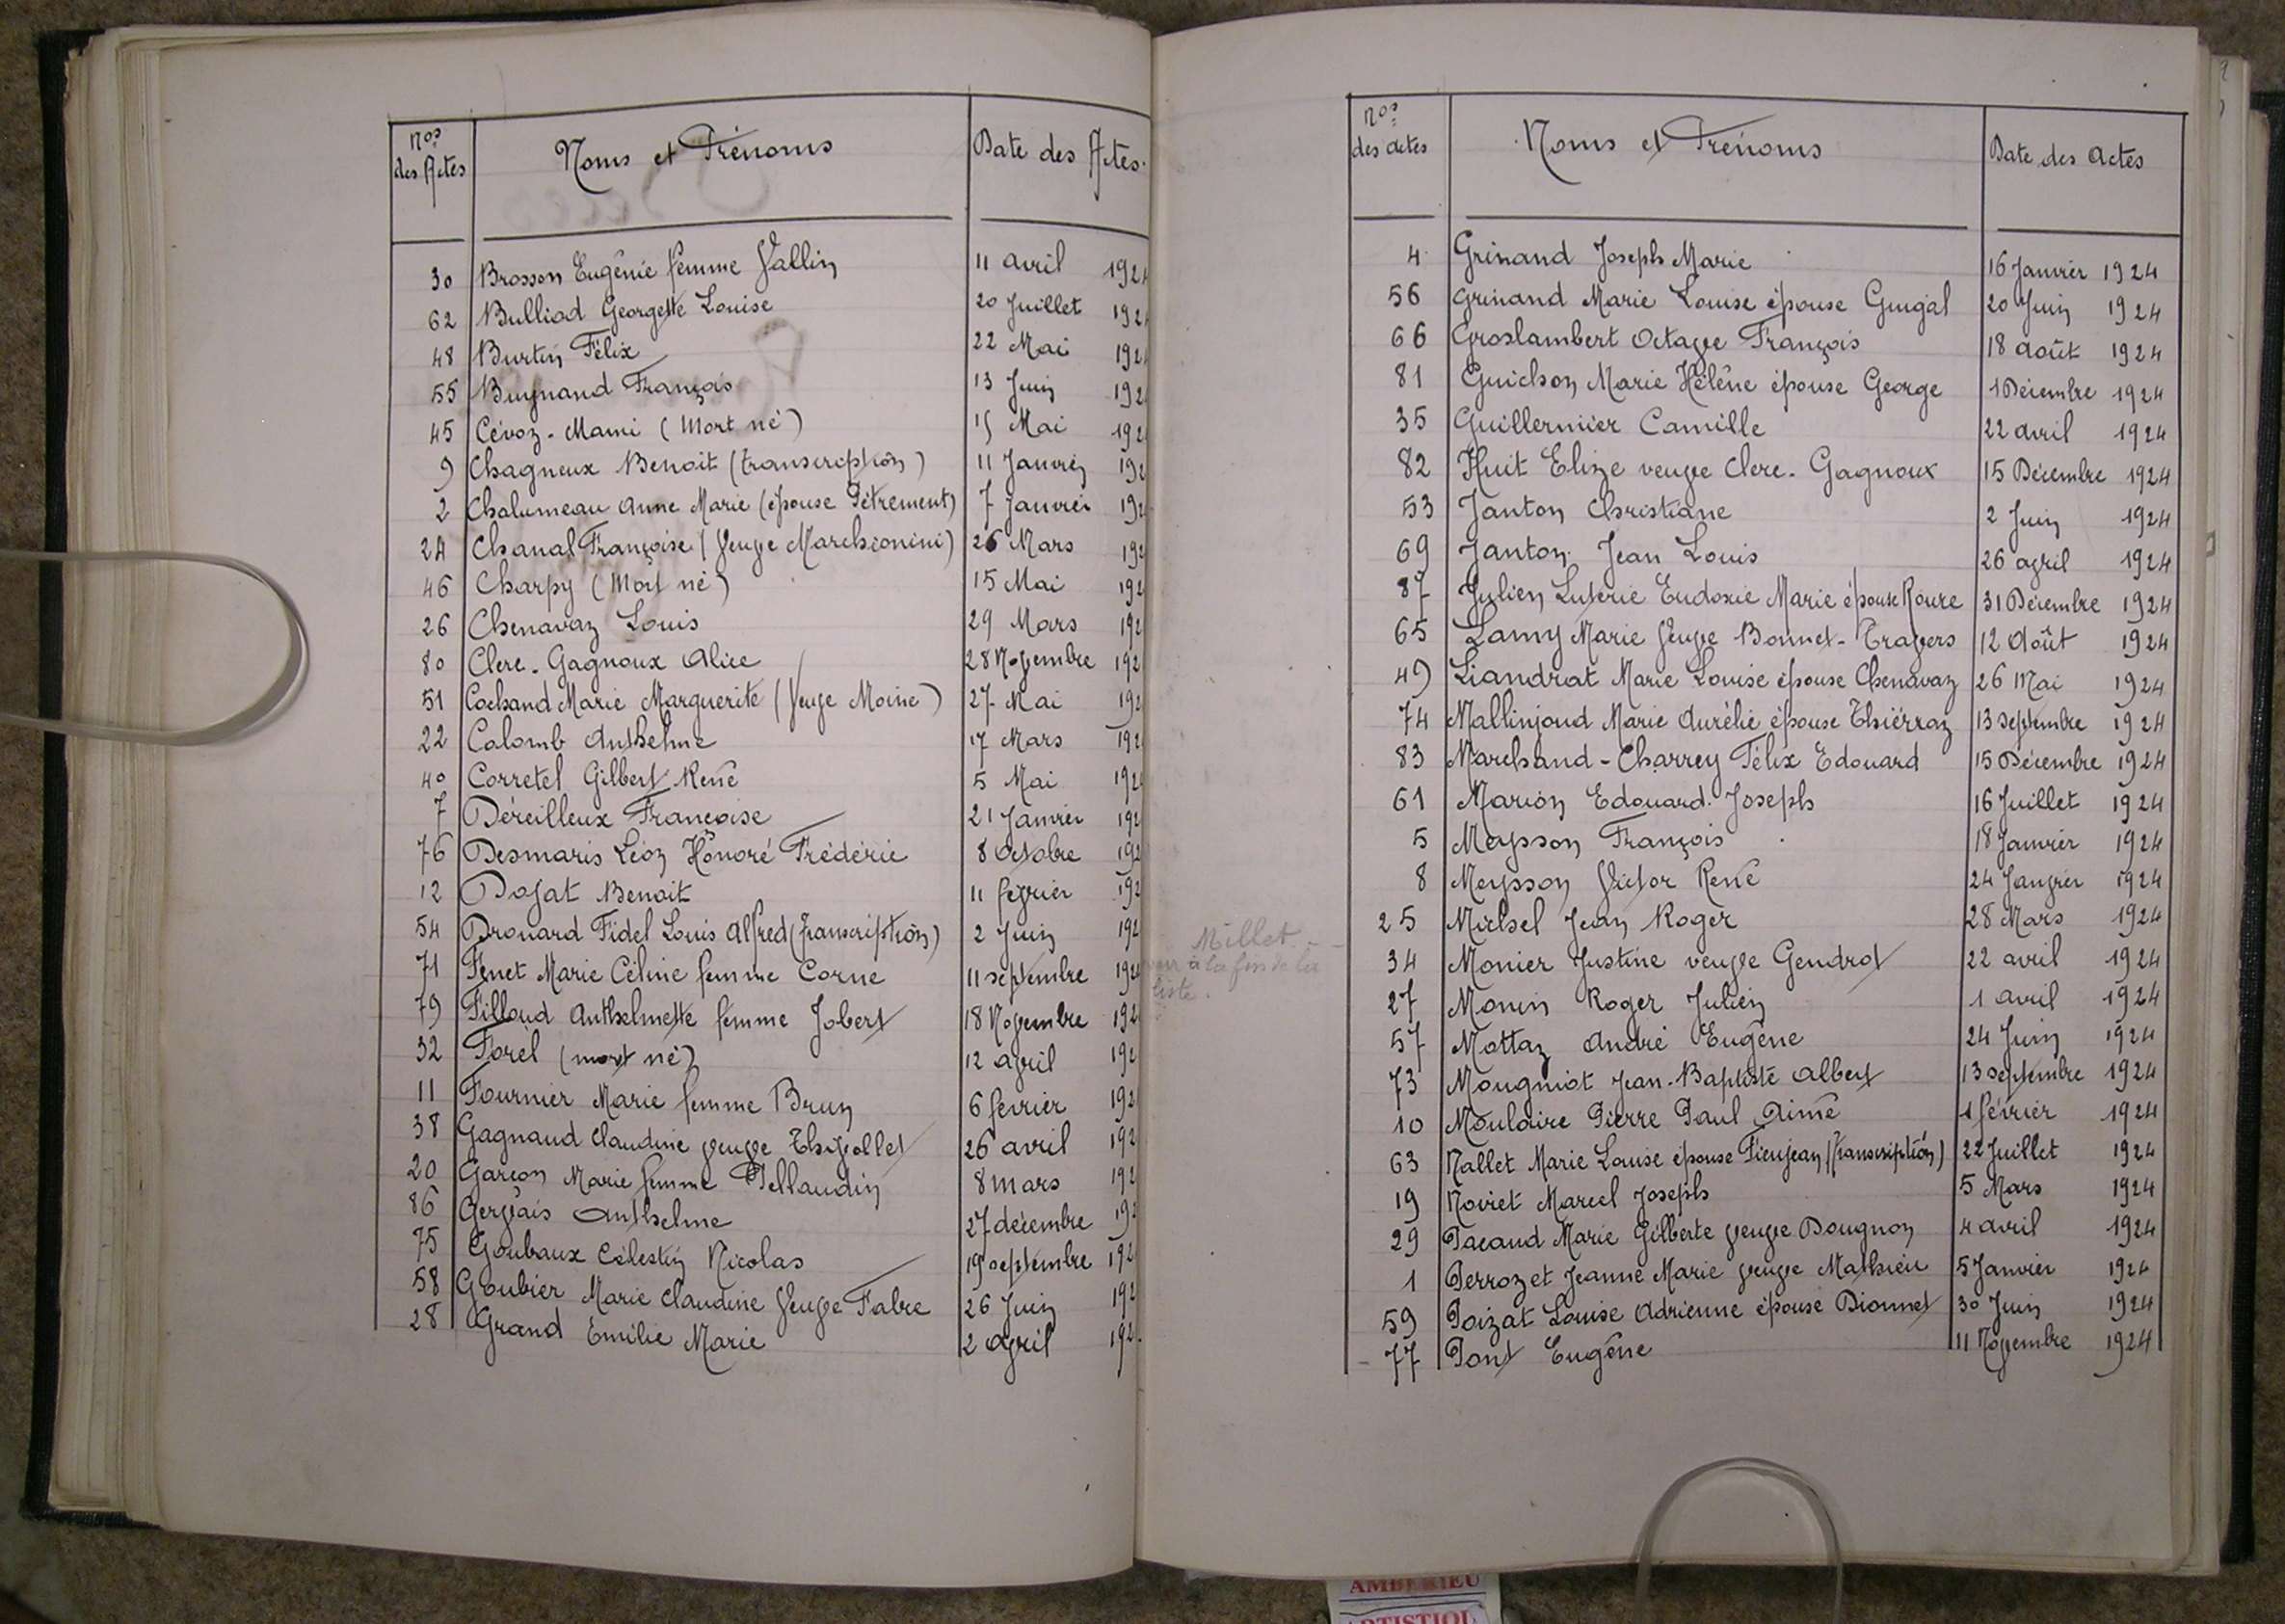 Nos des Actes Noms et Prénoms Date des Actes.
30 Brosson Eugénie femme Vallin 11 avril 1924
62 Bulliod Georgette Louise 20 Juillet 192
48 Burtin Félix 22 Mai 192
55 Buynand François 13 Juin 192
45 Cévoz-Mami (Mort né) 15 Mai 192
9 Chagneux Benoit (transcription) 11 Janvier 192
2 Chalumeau Anne Marie (épouse Pétrement) 7 Janvier 192
24 Chanal Françoise (Veuve Marchionini) 26 Mars 192
46 Charpy (Mort né) 15 Mai 192
26 Chenavaz Louis 29 Mars 192
80 Clerc-Gagnoux Alice 28 Novembre 192
51 Cochand Marie Marguerite (Veuve Moine) 27 Mai 192
22 Colomb Anthelme 17 Mars 192
40 Corretel Gilbert René 5 Mai 192
7 Déreilleux Françoise 21 Janvier 192
76 Desmaris Léon Honoré Frédéric 8 Octobre 192
12 Dojat Benoit 11 février 192
54 Drouard Fidel Louis Alfred (transcription) 2 Juin 192
71 Fenet Marie Céline femme Corne 11 septembre 192
79 Filloud Anthelmette femme Jobert 18 Novembre 192
32 Forel (mort né) 12 avril 192
11 Fournier Marie femme Brun 6 février 192
38 Gagnaud Claudine veuve Thivollet 26 avril 192
20 Garçon Marie femme Pellaudin 8 mars 192
86 Gervais Anthelme 27 décembre 192
75 Goubaux Célestin Nicolas 19 septembre 192
58 Goubier Marie Claudine Veuve Fabre 26 Juin 192
28 Grand Emilie Marie 2 avril 192
Millet
voir à la fin de la
liste.
Nos des actes Noms et Prénoms Date des Actes
4 Grinand Joseph Marie 16 Janvier 1924
56 Grinand Marie Louise épouse Guigal 20 Juin 1924
66 Groslambert Octave François 18 août 1924
81 Guichon Marie Hélène épouse George 1 Décembre 1924
35 Guillermier Camille 22 avril 1924
82 Huit Elize veuve Clerc-Gagnoux 15 Décembre 1924
53 Janton Christiane 2 Juin 1924
69 Janton Jean Louis 26 avril 1924
87 Julien Luterie Eudoxie Marie épouse Roure 31 Décembre 1924
65 Lamy Marie Veuve Bonnet-Travers 12 Août 1924
49 Liandrat Marie Louise épouse Chenavaz 26 Mai 1924
74 Mallinjoud Marie Aurélie épouse Thiérraz 13 septembre 1924
83 Marchand-Charrey Félix Edouard 15 Décembre 1924
61 Marion Edouard Joseph 16 Juillet 1924
5 Meysson François 18 Janvier 1924
8 Meysson Victor René 24 Janvier 1924
25 Michel Jean Roger 28 Mars 1924
34 Monier Justine veuve Gendrot 22 avril 1924
27 Monin Roger Julien 1 avril 1924
57 Mottaz André Eugène 24 Juin 1924
73 Mougniot Jean-Baptiste Albert 13 septembre 1924
10 Moulaire Pierre Paul Aimé 1 février 1924
63 Nallet Marie Louise épouse Pieujean (transcription) 22 Juillet 1924
19 Noiret Marcel Joseph 5 Mars 1924
29 Pacaud Marie Gilberte veuve Dougnon 4 avril 1924
1 Perrozet Jeanne Marie veuve Mathieu 5 Janvier 1924
59 Poizat Louise Adrienne épouse Dionnet 30 Juin 1924
77 Pont Eugène 11 Novembre 1924
AMBERIEU